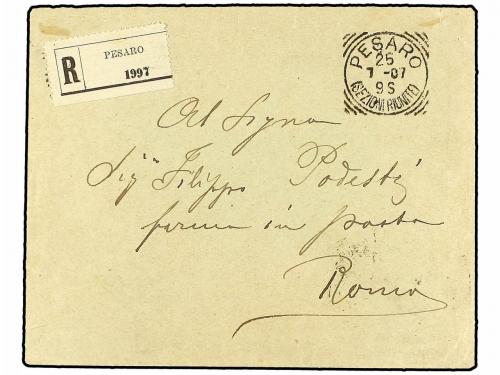 R
PESARO
1997
PESARO
25
7 -07
9S
(SEZIONI RIUNITE)
Al Signor
Sigr Filippo Podesti
ferma in posta
Roma